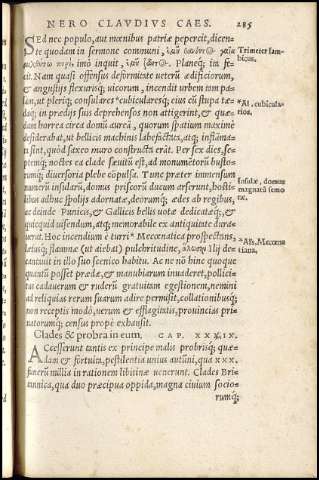 NERO CLAVDIVS CAES. 285
SEd nec populo, aut mœnibus patriæ pepercit, dicen-
te quodam in sermone communi, ἐμοῦ θανόντος γαῖα
μιχθήτω πυρί, imò inquit, ἐμοῦ ζῶντος. Planeq́; ita fe-
cit. Nam quasi offensus deformitate ueterū ædificiorum,
& angustijs flexurisq́; uicorum, incendit urbem tam pa-
lam, ut pleriq; consulares *cubicularesq́; eius cū stupa tæda-
q́; in prædijs suis deprehensos non attigerint, & quæ-
dam horrea circa domū auream, quorum spatium maxime
desiderabat, ut bellicis machinis labefactata, atq; inflamma-
ta sint, quòd saxeo muro constructa erāt. Per sex dies, se-
ptemq́; noctes ea clade sæuitū est, ad monumētorū bustorū-
q́; diuersoria plebe cōpulsa. Tunc præter immensum
numerū insularū, domus priscorū ducum arserunt, hosti-
libus adhuc spolijs adornatæ, deorumq́; ædes ab regibus,
ac deinde Punicis, & Gallicis bellis uotæ dedicatæq́;, &
quicquid uisendum, atq; memorabile ex antiquitate dura-
uerat. Hoc incendium è turri *Mecœnatica prospectans,
lætusq́; flammæ (ut dicebat) pulchritudine, ἅλωσιν Ilij de-
cantauit in illo suo scenico habitu. Ac ne nō hinc quoque
quantū posset prædæ, & manubiarum inuaderet, pollici-
tus cadauerum & ruderū gratuitam egestionem, nemini
ad reliquias rerum suarum adire permisit, collationibusq́;
non receptis modò, uerum & efflagitatis, prouincias pri-
uatorumq́; census propè exhausit.
Clades & probra in eum. CAP. XXXIX.
ACcesserunt tantis ex principe malis probrisq́; quæ-
dam & fortuita, pestilentia unius autūni, qua XXX.
funerū millia in rationem libitinæ uenerunt. Clades Bri-
tannica, qua duo præcipua oppida, magna ciuium socio-
rumq́;
Trimeter Iam-
bicus.
*Al. cubicula-
rios.
Insulæ, domus
magnatū semo
tæ.
*Als. Mecœna
tiana.